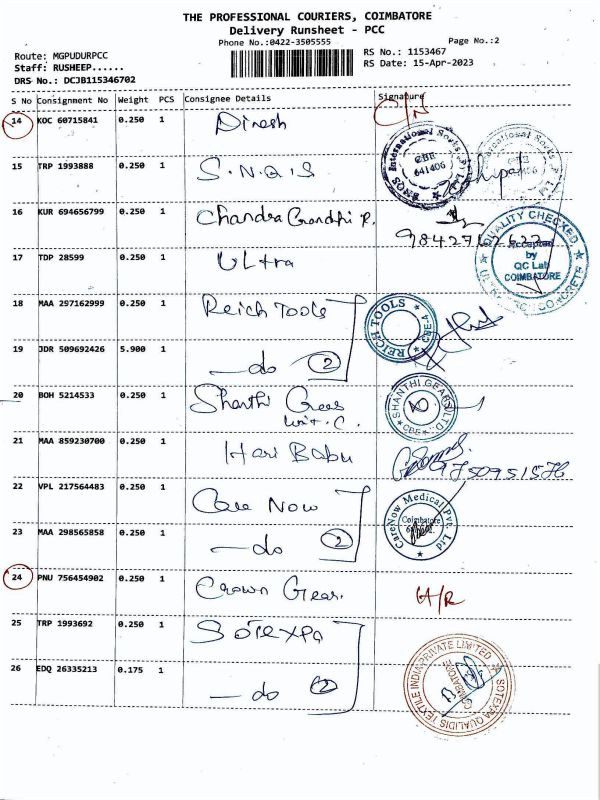 THE PROFESSIONAL COURIERS, COIMBATORE
Delivery Runsheet - PCC
Phone No.:0422-3505555 Page No.:2
Route: MGPUDURPCC RS No.: 1153467
Staff: RUSHEEP...... RS Date: 15-Apr-2023
DRS No.: DCJB115346702
S No Consignment No Weight PCS Consignee Details Signature
14 KOC 60715841 0.250 1 Dinesh
15 TRP 1993888 0.250 1 S.N.Q.S
SNQS International Socks P. Ltd CBE 641406
16 KUR 694656799 0.250 1 Chandra Gandhi P.
17 TDP 28599 0.250 1 ULtra
QUALITY CHECKED Accepted by QC Lab COIMBATORE
18 MAA 297162999 0.250 1 Reich Tools
REICH TOOLS CBE-4
19 JDR 509692426 5.900 1 —do 2
20 BOH 5214533 0.250 1 Shanthi Gears
unit. C.
SHANTHI GEARS LTD CBE
21 MAA 859230700 0.250 1 Hari Babu
22 VPL 217564483 0.250 1 Care Now
CareNow Medical Pvt. Ltd Coimbatore
23 MAA 298565858 0.250 1 —do 2
24 PNU 756454902 0.250 1 Crown Gear. H/R
25 TRP 1993692 0.250 1 Sotexpa
SOTEXPA QUALIDIS TEXTILE INDIA PRIVATE LIMITED COIMBATORE
26 EDQ 26335213 0.175 1 —do 2